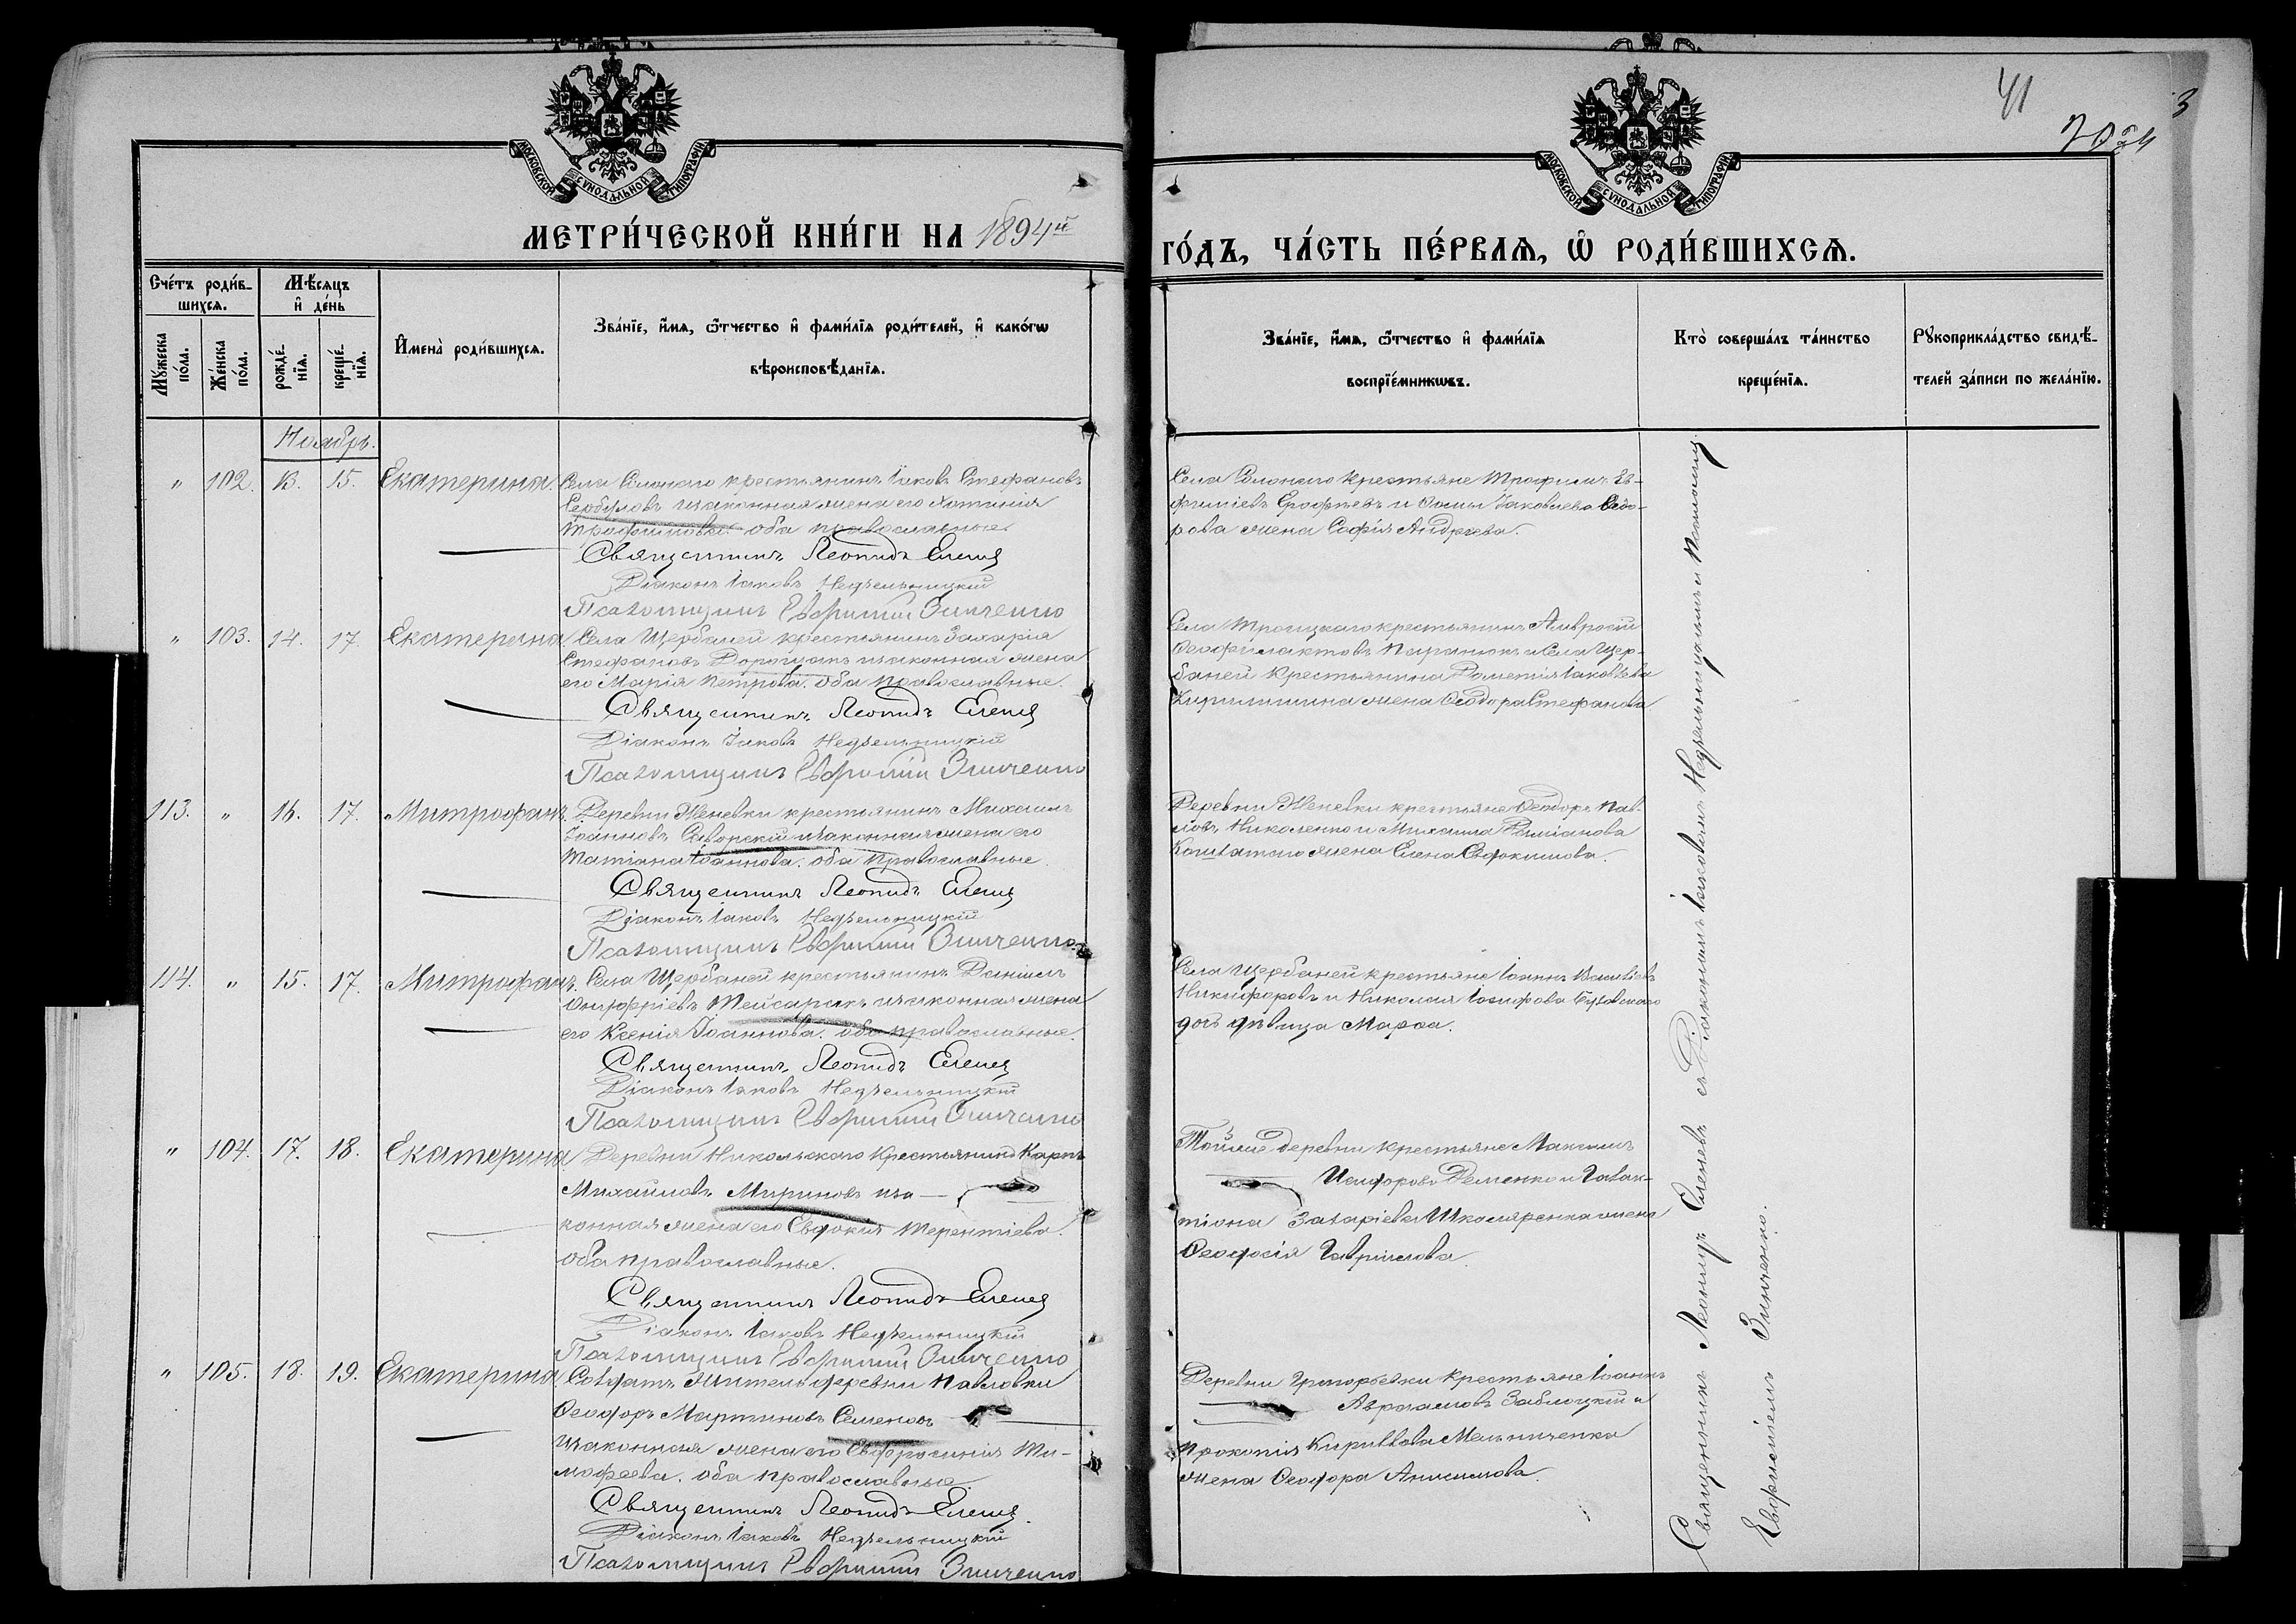 41
МОСКОВСКОЙ СУНОДАЛЬНОЙ ТИПОГРАФІИ
МОСКОВСКОЙ СУНОДАЛЬНОЙ ТИПОГРАФІИ
МЕТРИ́ЧЕСКОЙ КНИ́ГИ НА 1894й
ГО́ДЪ, ЧА́СТЬ ПЕ́РВАѦ, Ѿ РОДИ́ВШИХСѦ.
Сче́тъ роди́в-
шихсѧ.
Мѣ́сяцъ
и де́нь
Мꙋ́жеска по́ла.
Же́нска по́ла.
рожде́-нїѧ.
креще́-нїѧ.
Имена̀ роди́вшихсѧ.
Зва́нїе, и́мѧ, ѻ́тчество и фами́лїѧ роди́телей, и како́гѡ
вѣроисповѣ́данїѧ.
Зва́нїе, и́мѧ, ѻ́тчество и фами́лїѧ
воспрїе́мникѡвъ.
Кто̀ соверша́лъ та́инство
креще́нїѧ.
Рꙋкоприкла́дство свидѣ́-
телей за́писи по жела́нїю.
Ноябрь.
" 102. 13. 15. Екатерина. Села Солонаго крестьянинъ Іаковъ Стефановъ
Сербуловъ и законная жена его Хотинія
Трофимова. оба православные
Священникъ Леонидъ Еленевъ
Діаконъ Іаковъ Недѣльницкій
Псаломщикъ Евфимій Зинченко
Села Солонаго крестьяне Трофимъ Ев-
фиміевъ Ерофѣевъ и Ѳомы Іаковлева Сидо-
рова жена Софія Андреева.
" 103. 14. 17. Екатерина Села Щербаней крестьянинъ Захарія
Стефановъ Дорощакъ и законная жена
его Марія Петрова. оба православные.
Священникъ Леонидъ Еленевъ
Діаконъ Іаковъ Недѣльницкій
Псаломщикъ Евфимій Зинченко
Села Троицкаго крестьянинъ Амвросій
Ѳеофилактовъ Паранюкъ и Села Щер-
баней крестьянина Дометія Іаковлева
жена Ѳеодора Стефанова
113. " 16. 17. Митрофанъ. Деревни Женевки крестьянинъ Михаилъ
Іоанновъ Саворскій и законная жена его
Татіана Іоаннова. оба православные.
Священникъ Леонидъ Еленевъ
Діаконъ Іаковъ Недѣльницкій
Псаломщикъ Евфимій Зинченко
Деревни Женевки крестьяне Ѳеодоръ Пав-
ловъ Николенко и Михаила Даміанова
жена Елена Евдокимова.
114. " 15. 17. Митрофанъ. Села Щербаней крестьянинъ Даніилъ
Онуфріевъ и законная жена
его Ксенія Іоаннова. оба православные.
Священникъ Леонидъ Еленевъ
Діаконъ Іаковъ Недѣльницкій
Псаломщикъ Евфимій Зинченко
Села Щербаней крестьяне Іоаннъ Василіевъ
Никифоровъ и Николая Іосифова Бузовскаго
дочь дѣвица Марѳа.
" 104. 17. 18. Екатерина Деревни Никольскаго Крестьянинъ Карпъ
Михайловъ Мириновъ и за-
конная жена его Евдокія Терентіева.
оба православные.
Священникъ Леонидъ Еленевъ
Діаконъ Іаковъ Недѣльницкій
Псаломщикъ Евфимій Зинченко
Той же деревни крестьяне Максимъ
Исидоровъ Деменко и Галак-
тіона Захаріева Школяренка жена
Ѳеодосія Гавриилова.
" 105. 18. 19. Екатерина Солдатъ житель деревни Павловки
Ѳеодоръ Мартиновъ Семеновъ
и законная жена его Евфросинія Ти-
моѳеева. оба православные.
Священникъ Леонидъ Еленевъ.
Діаконъ Іаковъ Недѣльницкій
Псаломщикъ Евфимій Зинченко
Деревни Григорьевки крестьяне Іоаннъ
Авраамовъ Заблоцкій и
Прокопія Кириллова Мельниченка
жена Ѳеодора Анисимова.
Священникъ Леонидъ Еленевъ съ Діакономъ Іаковомъ Недѣльницкимъ и Псаломщ.
Евфиміемъ Зинченко.